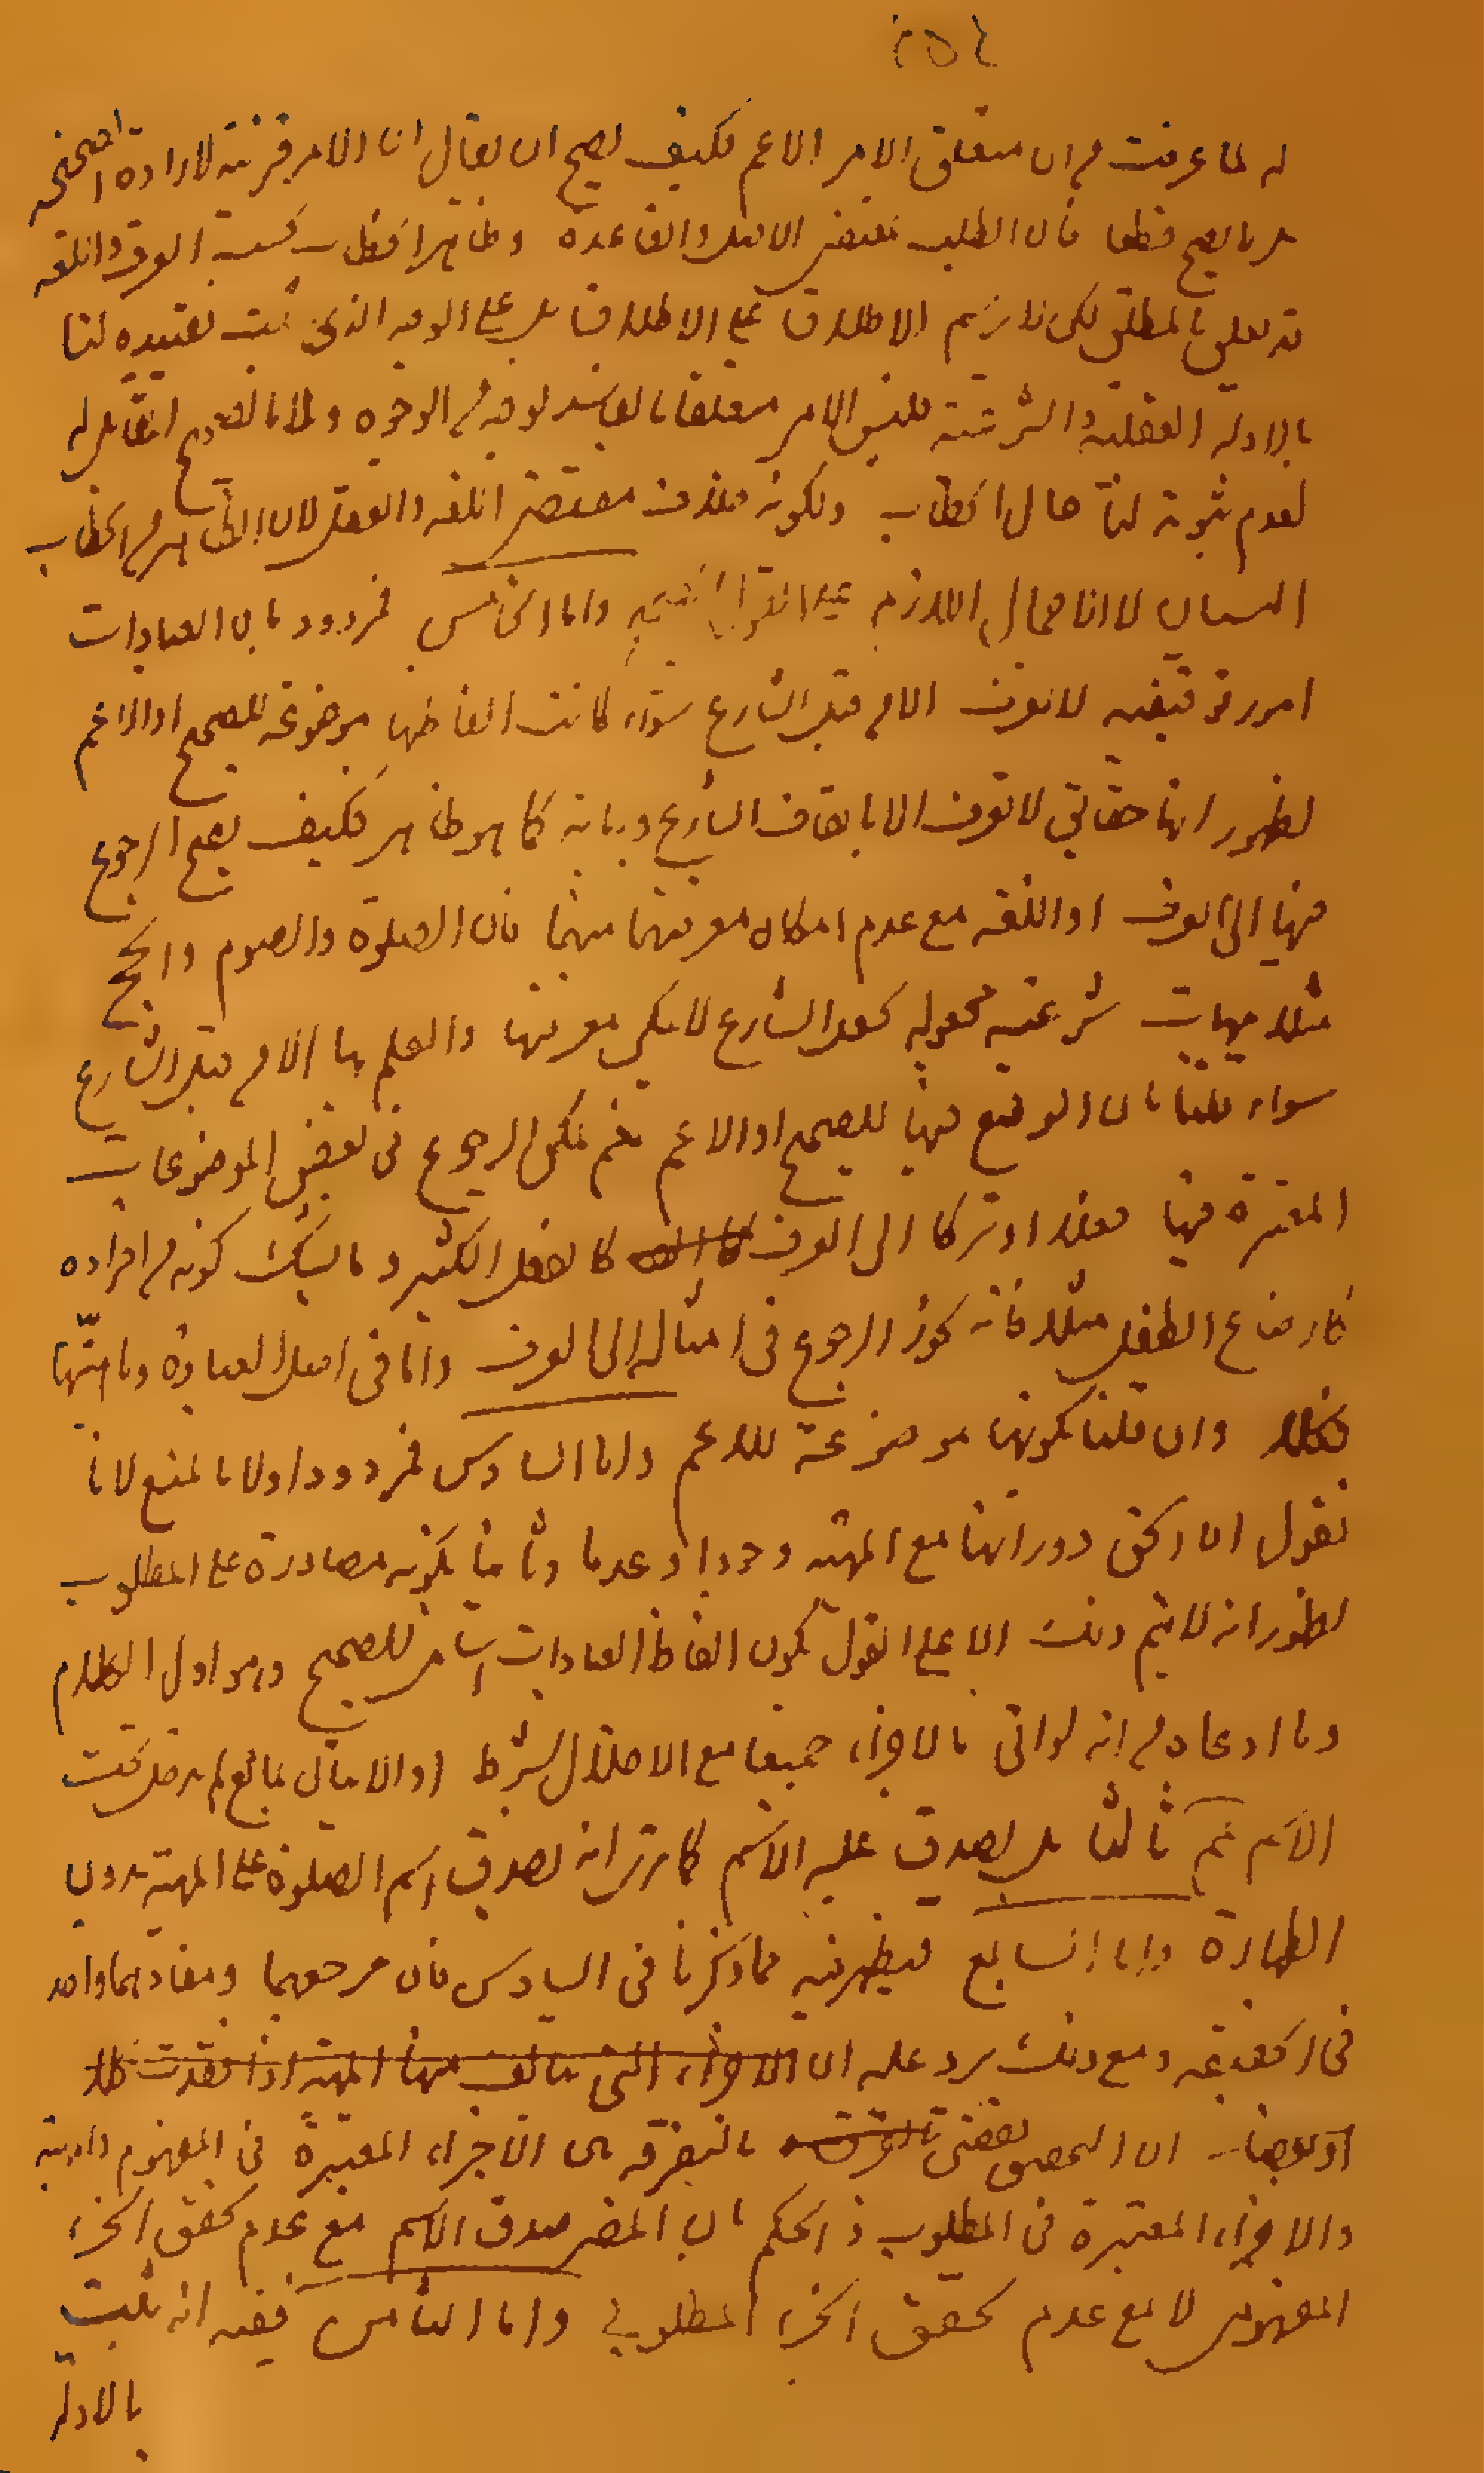 ٢٥٤
له لما عرفت من ان متعلق الامر الاعم فكيف يصح ان يقال ان الامر قرينة لارادة الصحيحة
بل لا يصح قطعا فان الطلب بمقتضى الاصل والقاعدة وظاهر الخطاب بحسب العرف واللغة
قد تعلق بالمطلق لكن لا نريهم الاطلاق على الاطلاق بل على الوجه الذى ثبت تقييده لنا
بالادلة العقلية والشرعية فليس الامر متعلقا بالفاسد لوجه من الوجوه ولا بالصحيح المقابل له
لعدم ثبوته لنا حال الخطاب ولكونه خلاف مقتضى اللغة والعقل لان الظاهر من الخطاب
البيان لا الاجمال اللازم على القول بالصحيح واما الخامس فمردود بان العبادات
امور توقيفيه لا تعرف الا من قبل الشارع سواء كانت الفاظها موضوعة للصحيح او الاعم
لظهور انها حقائق لا تعرف الا بايقاف الشارع وبيانه كما هو ظاهر فكيف يصح الرجوع
فيها الى العرف او اللغة مع عدم امكان معرفتها منهما فان الصلوة والصوم والحج
مثلا مهيات شرعية مجعولة بجعل الشارع لا يمكن معرفتها والعلم بها الا من قبل الشارع
سواء قلنا بان الوضع فيها للصحيح او الاعم نعم يمكن الرجوع فى بعض الموضوعات
المعتبرة فيها فعلا او تركا الى العرف كالفعل الكثير وما يشك كونه من افراده
كارضاع الطفل مثلا فانه يجوز الرجوع فى امثاله الى العرف واما فى اصل العبادة وماهيتها
فكلا وان قلنا بكونها موضوعة للاعم واما السادس فمردود اولا بالمنع لانا
نقول ان الحق دورانها مع المهية وجودا وعدما وثانيا بكونه مصادرة على المطلوب
لظهور انه لا يتم ذلك الا على القول بكون الفاظ العبادات اسام للصحيح وهو اول الكلام
وما ادعاه من انه لو اتى بالاجزاء جميعا مع الاخلال بشرط او الاتيان بمانع لم يدخل تحت
الاسم ثم ثالثا بل يصدق عليه الاسم كما مر انه يصدق اسم الصلوة على المهية بدون
الطهارة واما السابع فيظهر فيه مما ذكرنا فى السادس فان مرجعهما ومفادهما واحد
فى الحقيقة ومع ذلك يرد عليه ان الاجزاء التى يتالف منها المهية اذا فقدت كلا
او بعضا ان التحقيق يقتضى بالتفرقة بين الاجزاء المعتبرة فى المفهوم والمهية
والاجزاء المعتبرة فى المطلوب فالحكم بان المضر صدق الاسم مع عدم تحقق الجزء
المفهومى لا مع عدم تحقق الجزء المطلوبى واما الثامن ففيه انه ثبت
بالادلة